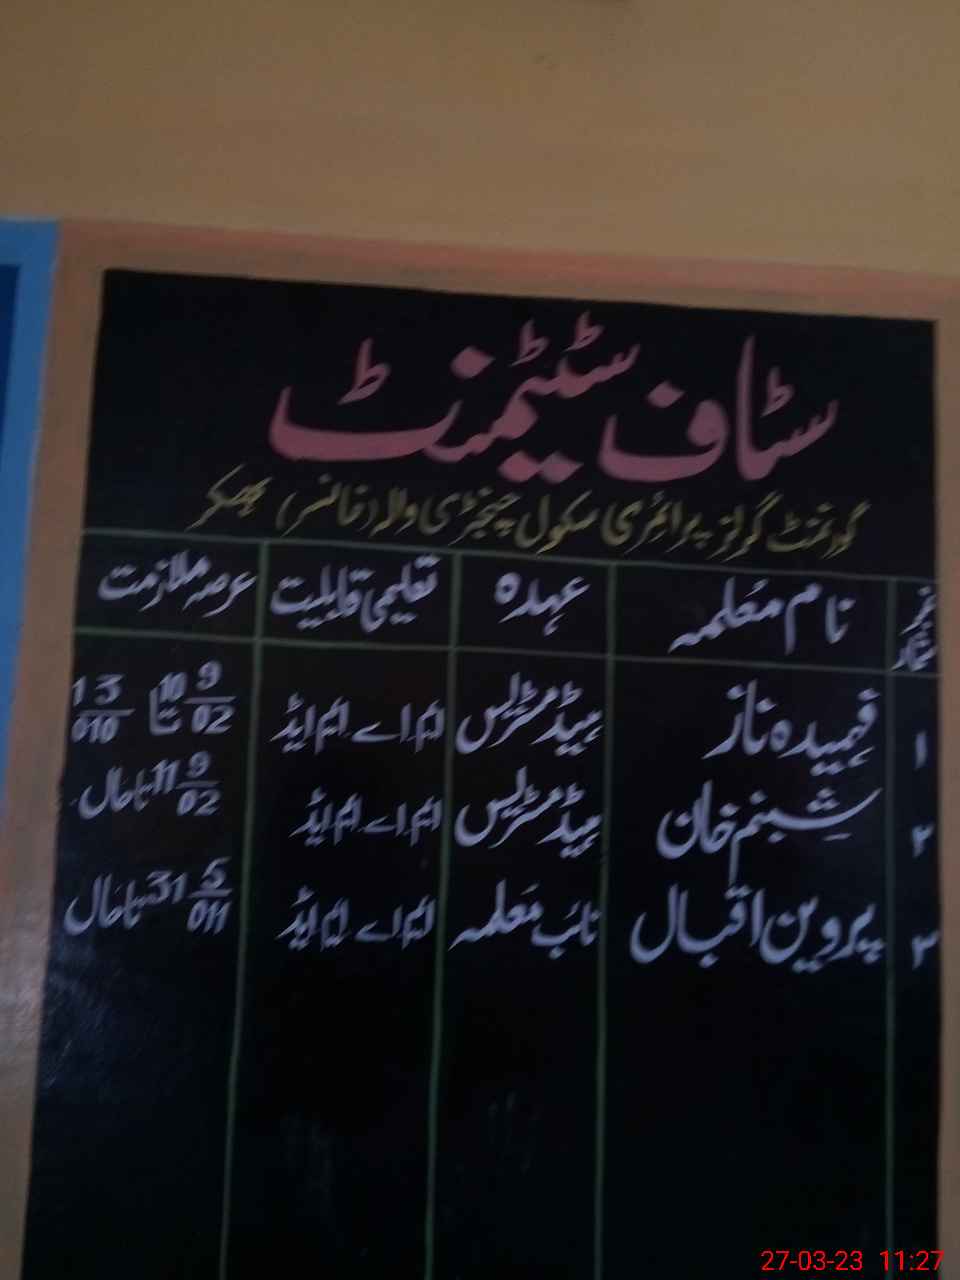 سٹاف سٹیٹمنٹ
گورنمنٹ گرلز پرائمری سکول چنجڑی والہ (خانسر) بھکر
نمبر شمار نام معلمہ عہدہ تعلیمی قابلیت عرصہ ملازمت
۱ فہمیدہ ناز ہیڈمسٹریس ایم اے ایم ایڈ 10 9/02 تا 13/010
۲ شبنم خان ہیڈمسٹریس ایم اے ایم ایڈ 11 9/02 تاحال
۳ پروین اقبال نائب معلمہ ایم اے ایم ایڈ 31 5/011 تاحال
27-03-23 11:27